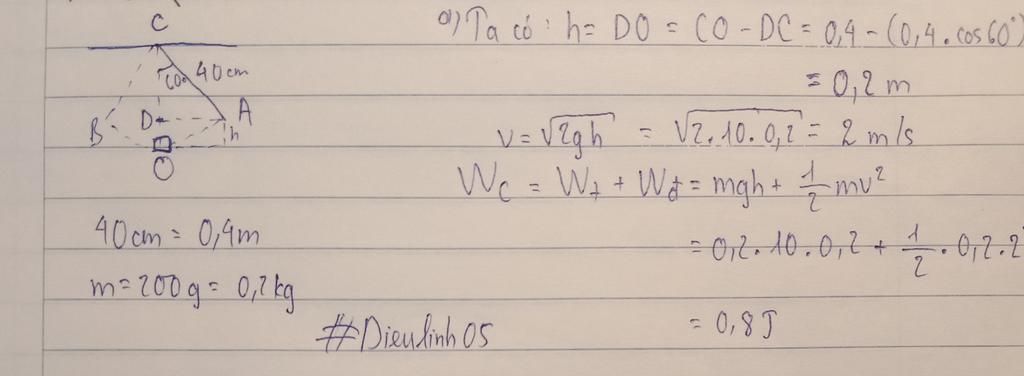 C
60° 40cm
B D A
h
O
40cm = 0,4m
m = 200g = 0,2kg
#Dieulinh05
a) Ta có: h = DO = CO - DC = 0,4 - (0,4.cos60°)
= 0,2 m
v = √2gh = √2.10.0,2 = 2 m/s
Wc = Wt + Wđ = mgh + 1/2 mv²
= 0,2.10.0,2 + 1/2 . 0,2.2
= 0,8J